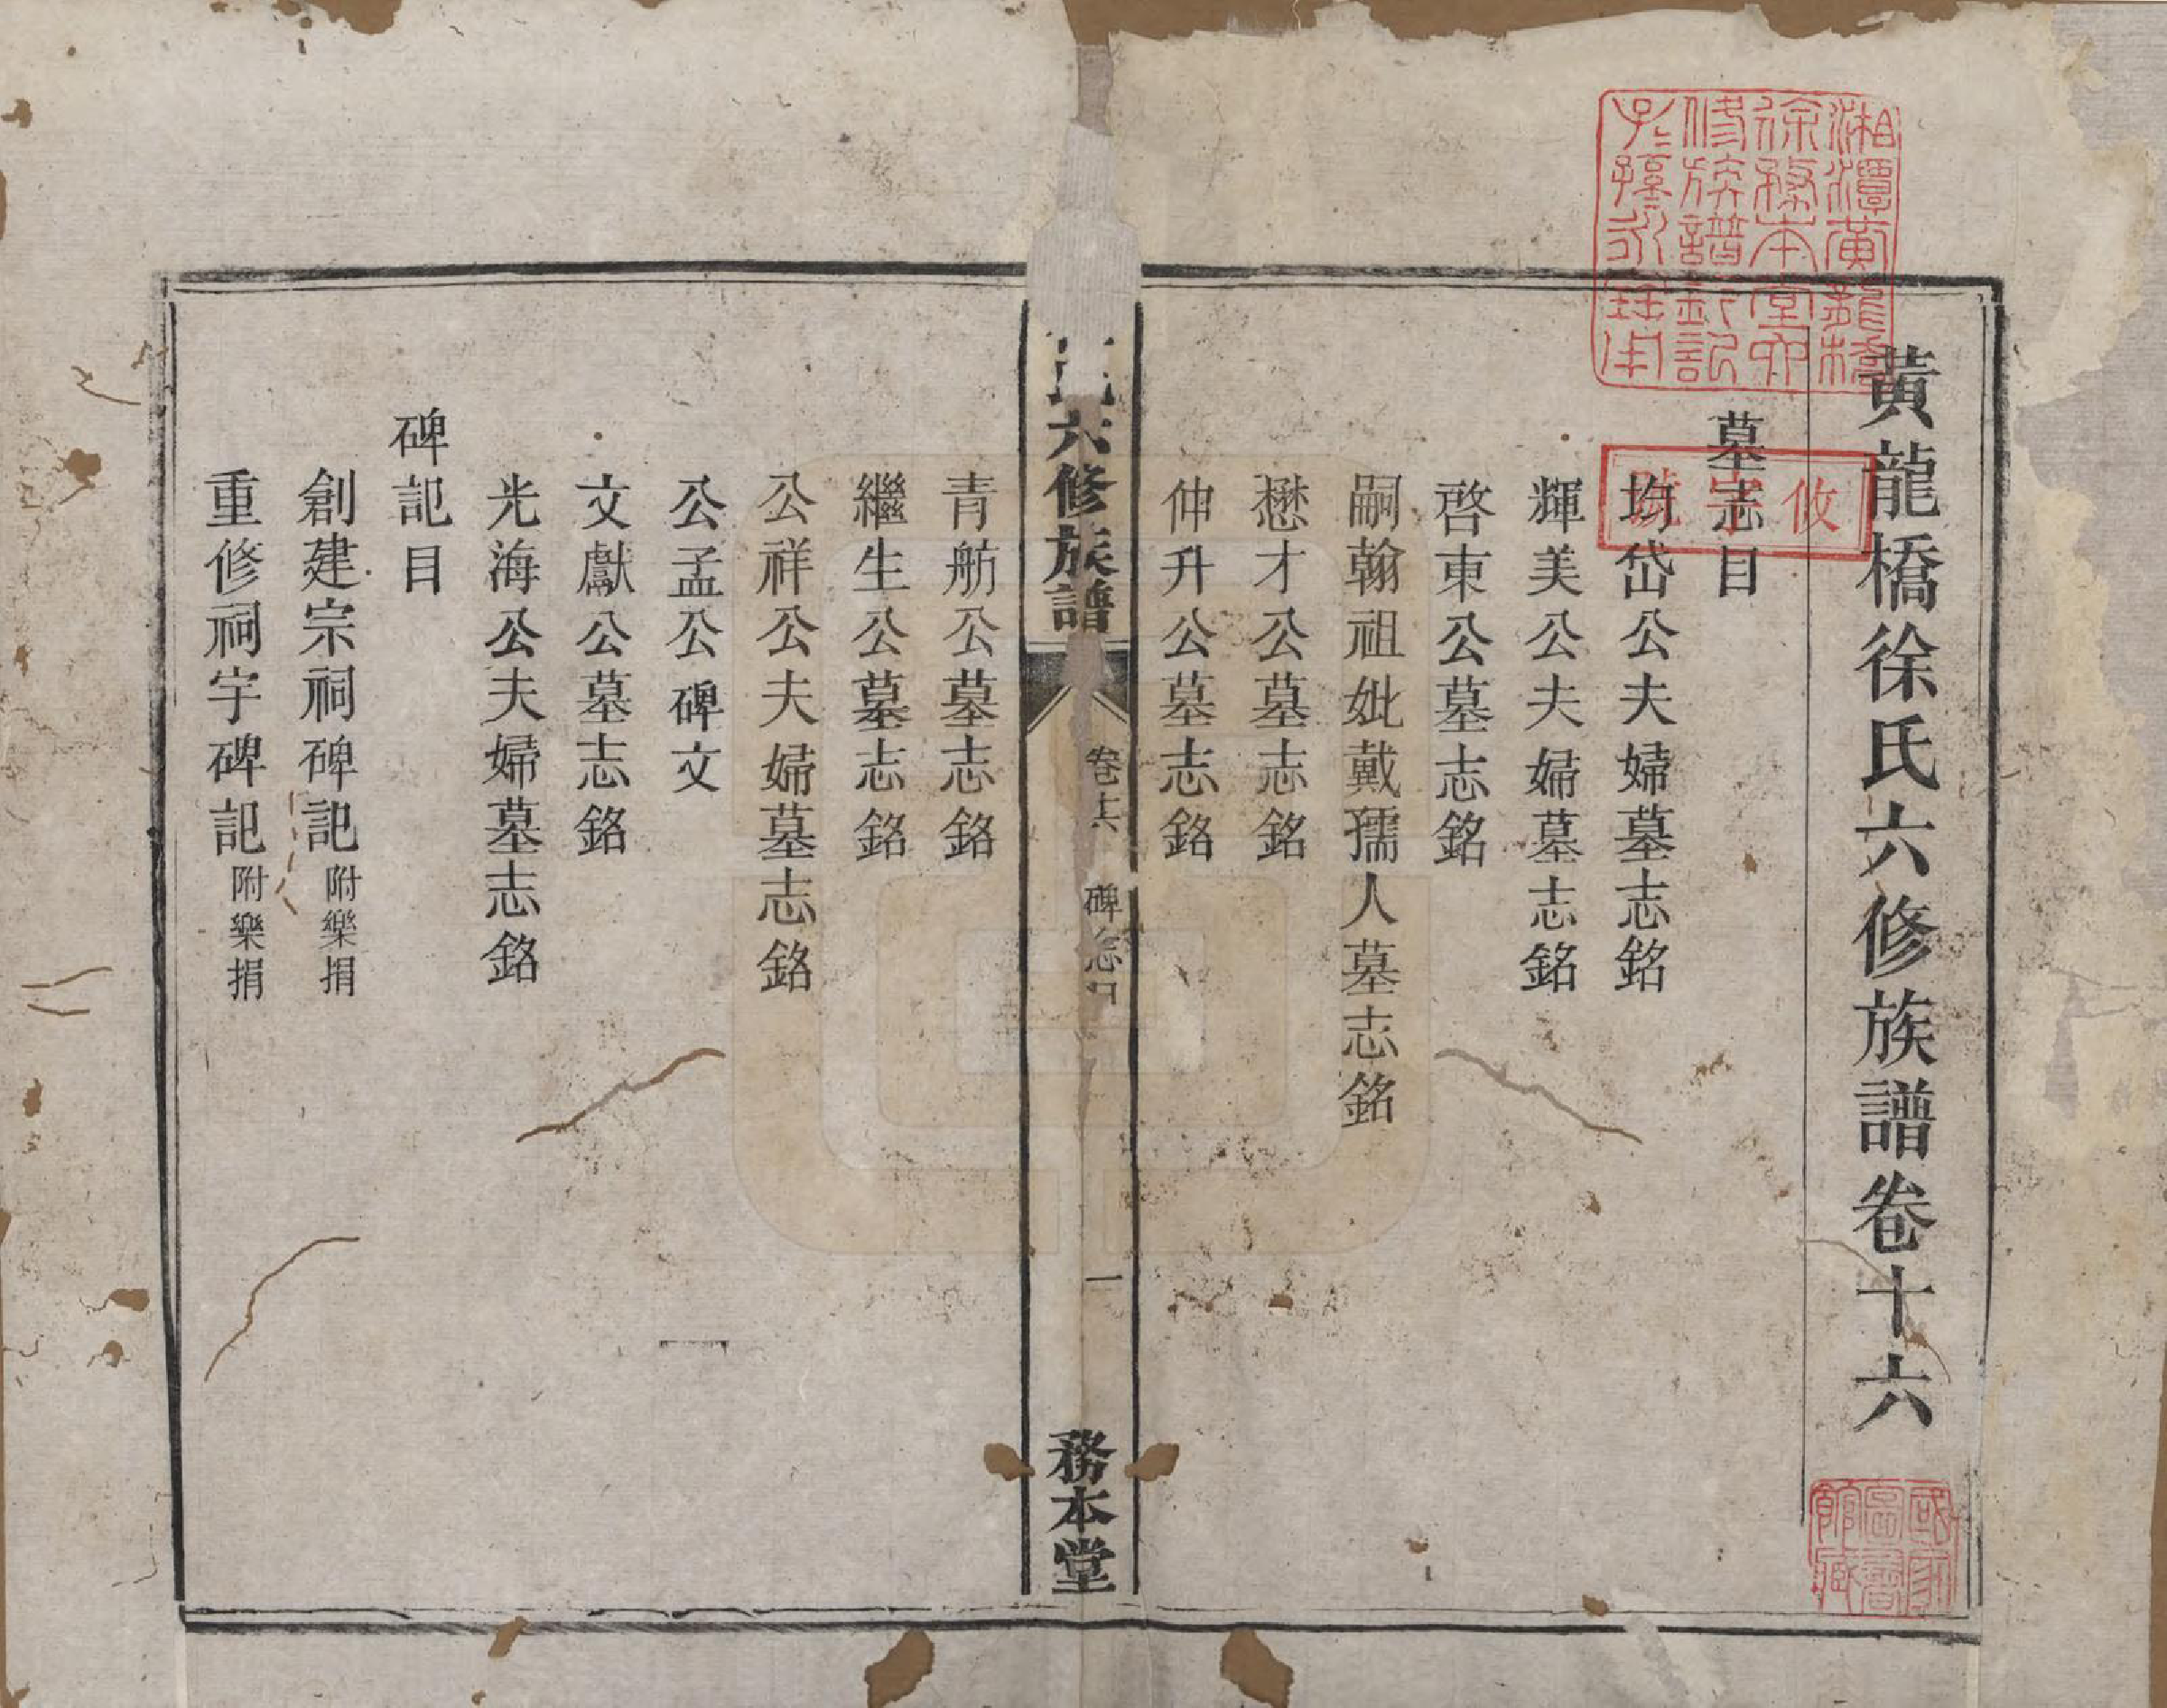 黃龍橋徐氏六修族譜卷十六
墓志目
均岱公夫婦墓志銘
輝美公夫婦墓志銘
啓東公墓志銘
嗣翰祖妣戴孺人墓志銘
懋才公墓志銘
仲升公墓志銘
氏六修族譜
卷十六
碑志目
一
務本堂
青舫公墓志銘
繼生公墓志銘
公祥公夫婦墓志銘
公孟公碑文
文獻公墓志銘
光海公夫婦墓志銘
碑記目
創建宗祠碑記附樂捐
重修祠宇碑記附樂捐
湘潭黃龍橋
徐務本堂六
修族譜鈐記
子孫永珍用
攸字號
國家圖書館藏